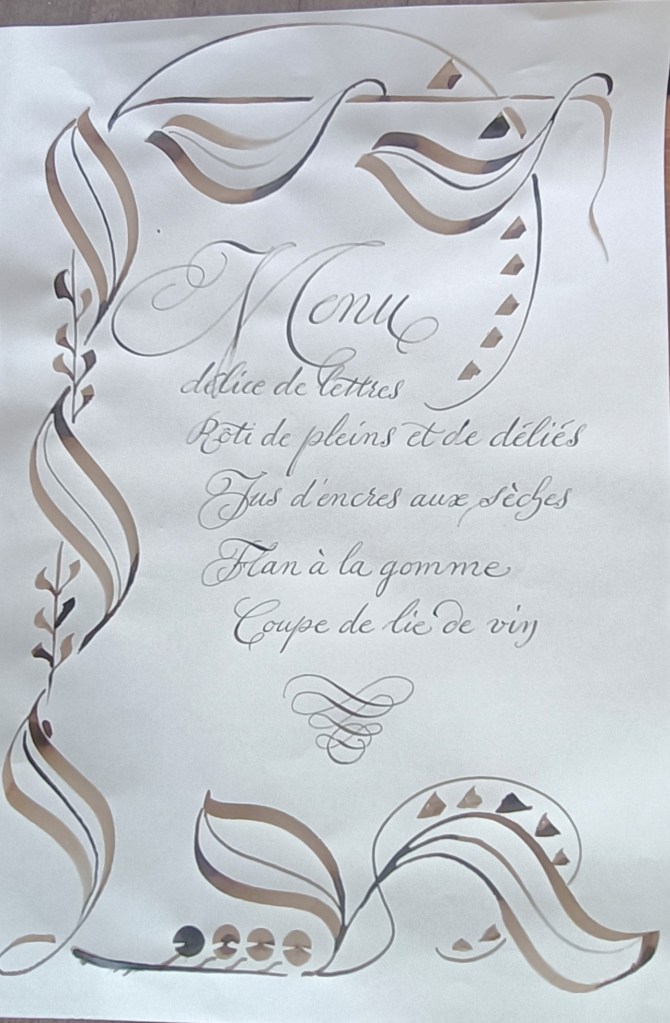 Menu
délice de lettres
Rôti de pleins et de déliés
Jus d'encres aux sèches
Flan à la gomme
Coupe de lie de vin